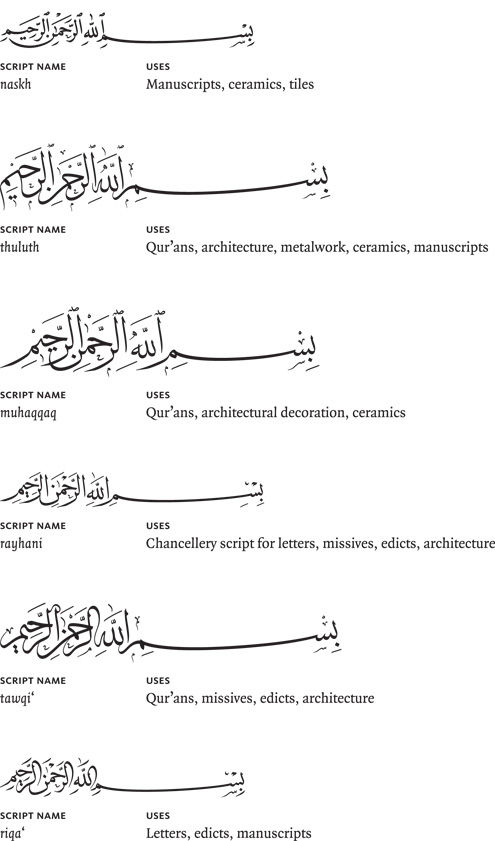 بسم الله الرحمن الرحيم
SCRIPT NAME USES
naskh Manuscripts, ceramics, tiles
بسم الله الرحمن الرحيم
SCRIPT NAME USES
thuluth Qur’ans, architecture, metalwork, ceramics, manuscripts
بسم الله الرحمن الرحيم
SCRIPT NAME USES
muhaqqaq Qur’ans, architectural decoration, ceramics
بسم الله الرحمن الرحيم
SCRIPT NAME USES
rayhani Chancellery script for letters, missives, edicts, architecture
بسم الله الرحمن الرحيم
SCRIPT NAME USES
tawqi‘ Qur’ans, missives, edicts, architecture
بسم الله الرحمن الرحيم
SCRIPT NAME USES
riqa‘ Letters, edicts, manuscripts